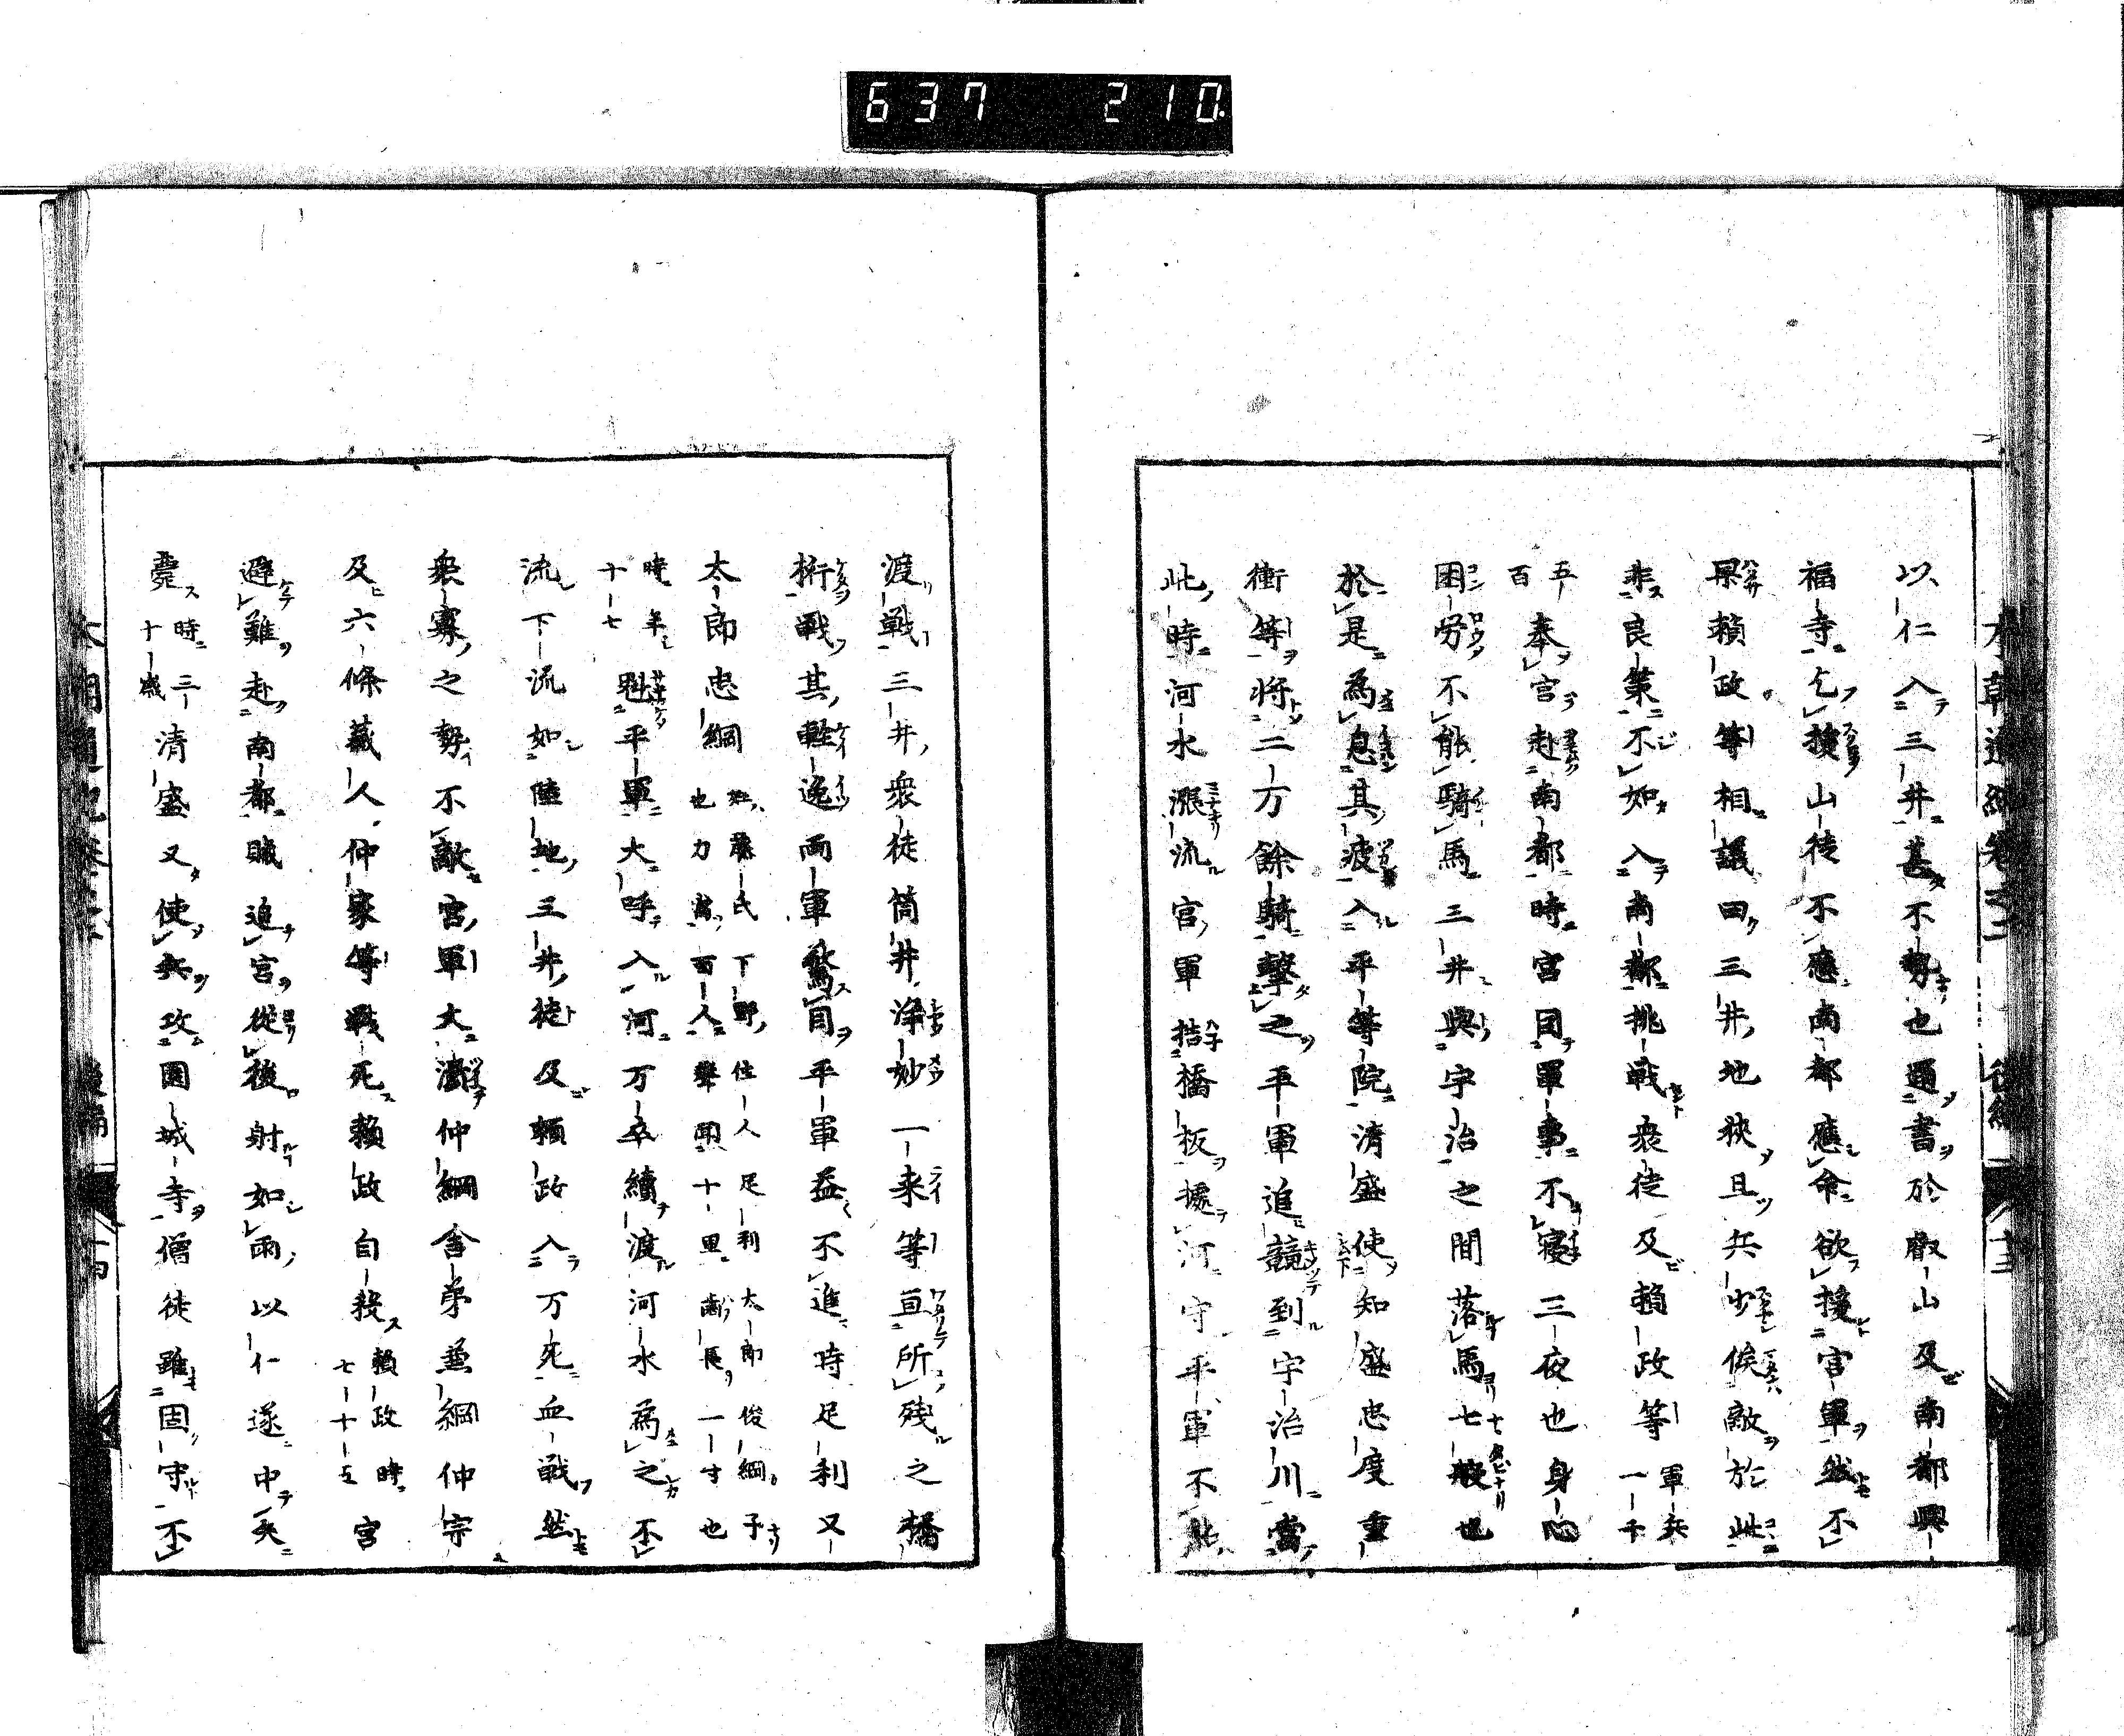 637 210
以仁入三井甚不勢也通書於叡山及南都興
福寺乞援山徒不應南都應命欲援宮軍然不
果頼政等相議曰三井地狭且兵少俟敵於此
非良策不如入南都挑戦衆徒及頼政等軍兵一千
五百奉宮赴南都時宮因軍事不寝三夜也身心
困労不能騎馬三井與宇治之間落馬七般也
於是為息其疲入平等院清盛使知盛忠度重
衝等将二万餘騎撃之平軍追競到宇治川當
此時河水漲流宮軍撘橋板據河守平軍不能
渡戦三井衆徒筒井浄妙一来等亘所残之橋
桁戰其軽逸両軍驚目平軍益不進時足利又
太郎忠綱姓藤氏下野住人足利太郎俊綱子也力當百人聲聞十里歯長一寸也
時年十七魁平軍大呼入河万卒續渡河水為之不
流下流如陸地三井徒及頼政入万死血戦然
衆寡之勢不敵宮軍大潰仲綱舎弟兼綱仲宗
及六條蔵人仲家等戦死頼政自殺頼政時七十五宮
避難赴南都賊追宮従後射如雨以仁遂中矢
薨時三十歳清盛又使兵攻園城寺僧徒雖固守不